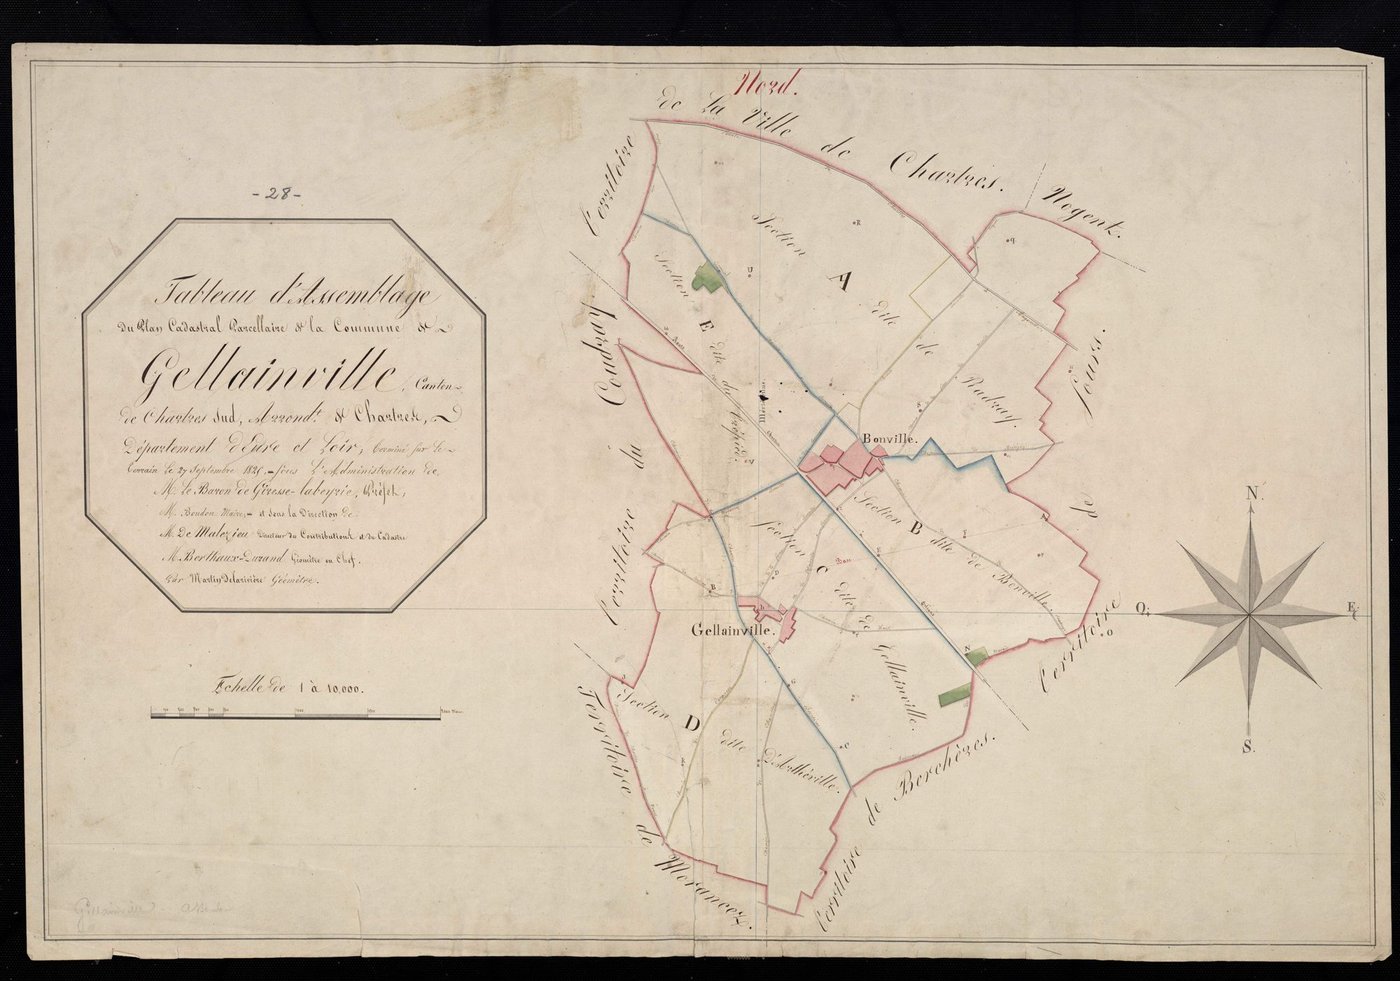 -28-
Tableau d'Assemblage
Du Plan Cadastral Parcellaire de la Commune de
Gellainville, Canton
de Chartres Sud, Arrondt. de Chartres,
Département d'Eure et Loir, terminé sur le
terrain le 27 Septembre 1826,- sous l'Administration de
M. le Baron de Giresse-labeyrie, Préfet,
M. Boudon Maire,- et sous la Direction de
M. De Malezieu Directeur des Contributions et du Cadastre
M. Berthaux-Durand Géomètre en Chef.
Par Martin Delarivière Géomètre.
Echelle de 1 à 10,000.
Nord.
Territoire de La Ville de Chartres.
Nogent.
Sours.
de
Territoire
Territoire du Coudray.
Territoire de Morancez.
Territoire de Berchères.
Section A dite de Radray.
Section E dite du Crépied.
Bonville.
Section B dite de Bonville.
Section C dite de Gellainville.
Gellainville.
Section D dite D'Arthéville.
N.
O.
E.
S.